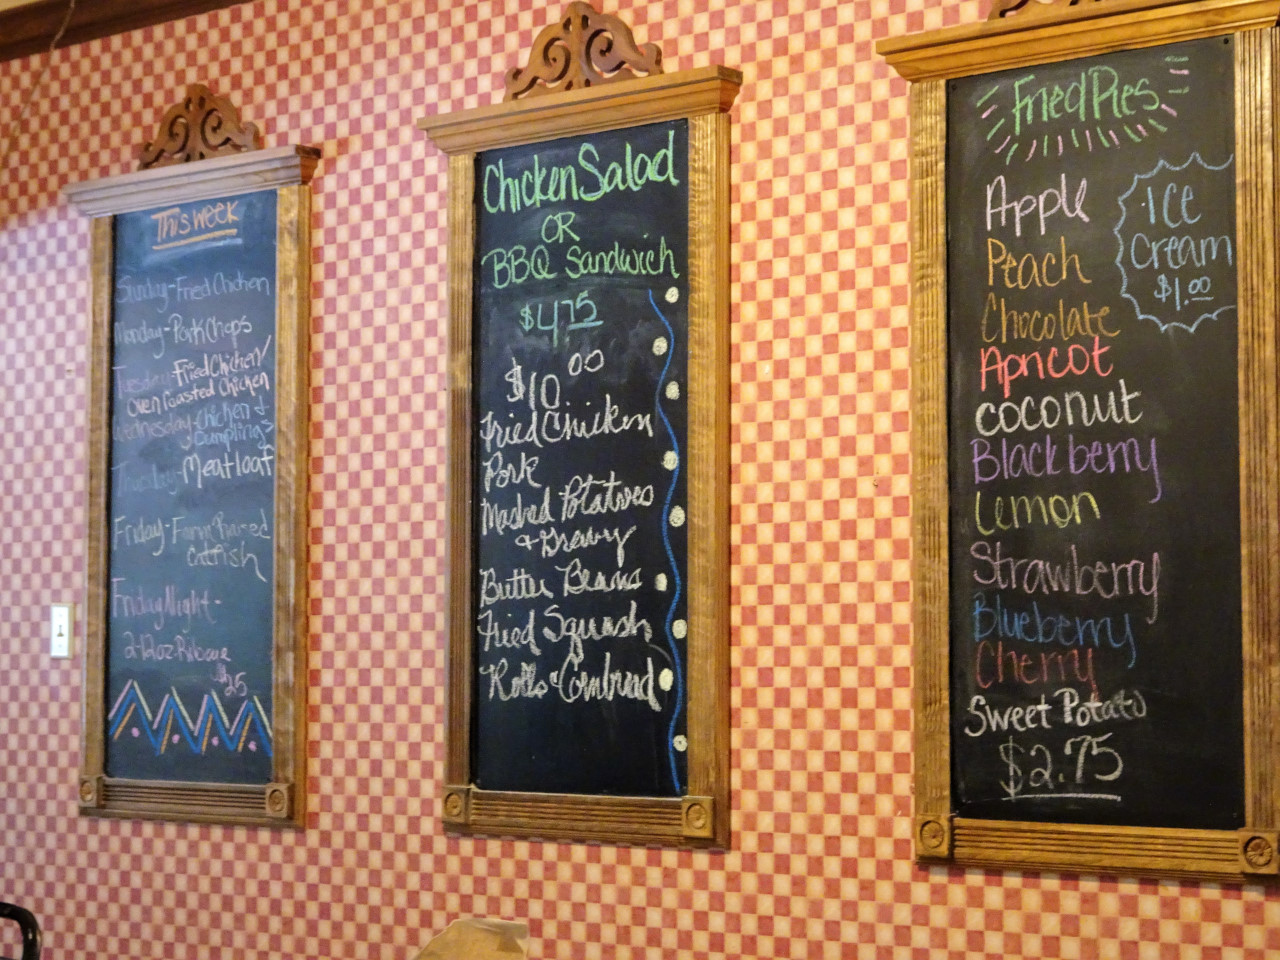 This week
Sunday-Fried Chicken
Monday-Pork Chops
Tuesday-Fried Chicken/
Oven roasted Chicken
Wednesday-Chicken &
Dumplings
Thursday-Meatloaf
Friday-Farm Raised
Catfish
Friday Night-
2-12oz-Ribeye
$25
Chicken Salad
OR
BBQ Sandwich
$4.75
$10.00
Fried Chicken
Pork
Mashed Potatoes
& Gravy
Butter Beans
Fried Squash
Rolls & Cornbread
Fried Pies
Apple
Peach
Chocolate
Apricot
coconut
Blackberry
Lemon
Strawberry
Blueberry
Cherry
Sweet Potato
$2.75
Ice
Cream
$1.00